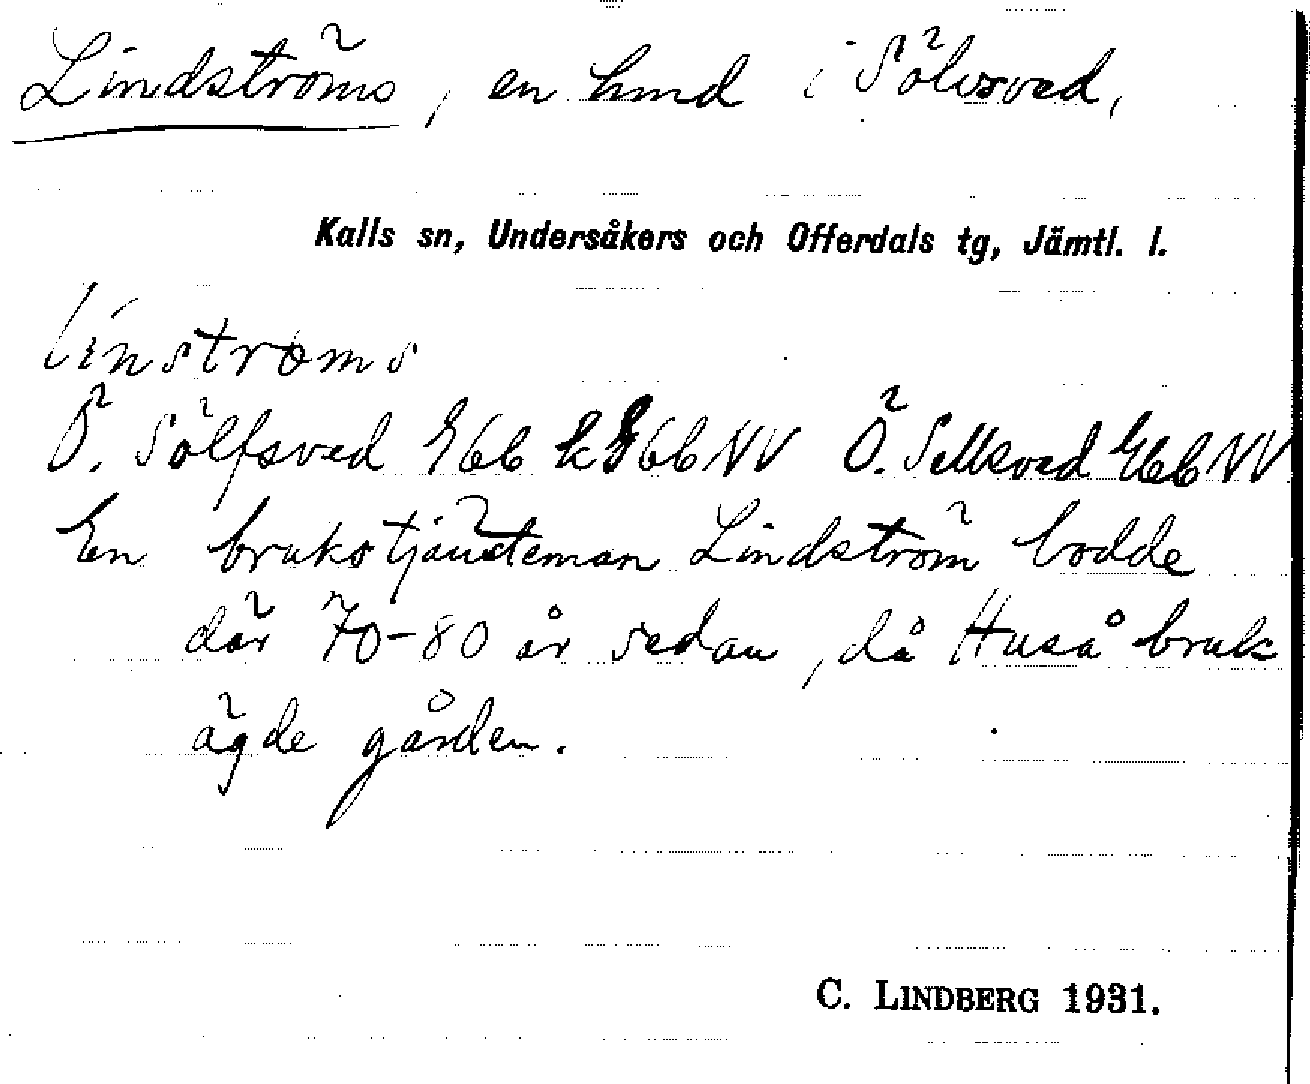 Lindströms, en hmd i Sölvsved,
Kalls sn, Undersåkers och Offerdals tg, Jämtl. l.
linstroms
Ö. Sölfsved Gbb NV Ö. Sellsved Gbb NV
En brukstjänsteman Lindström bodde
där 70-80 år sedan, då Huså bruk
ägde gården.
C. LINDBERG 1931.